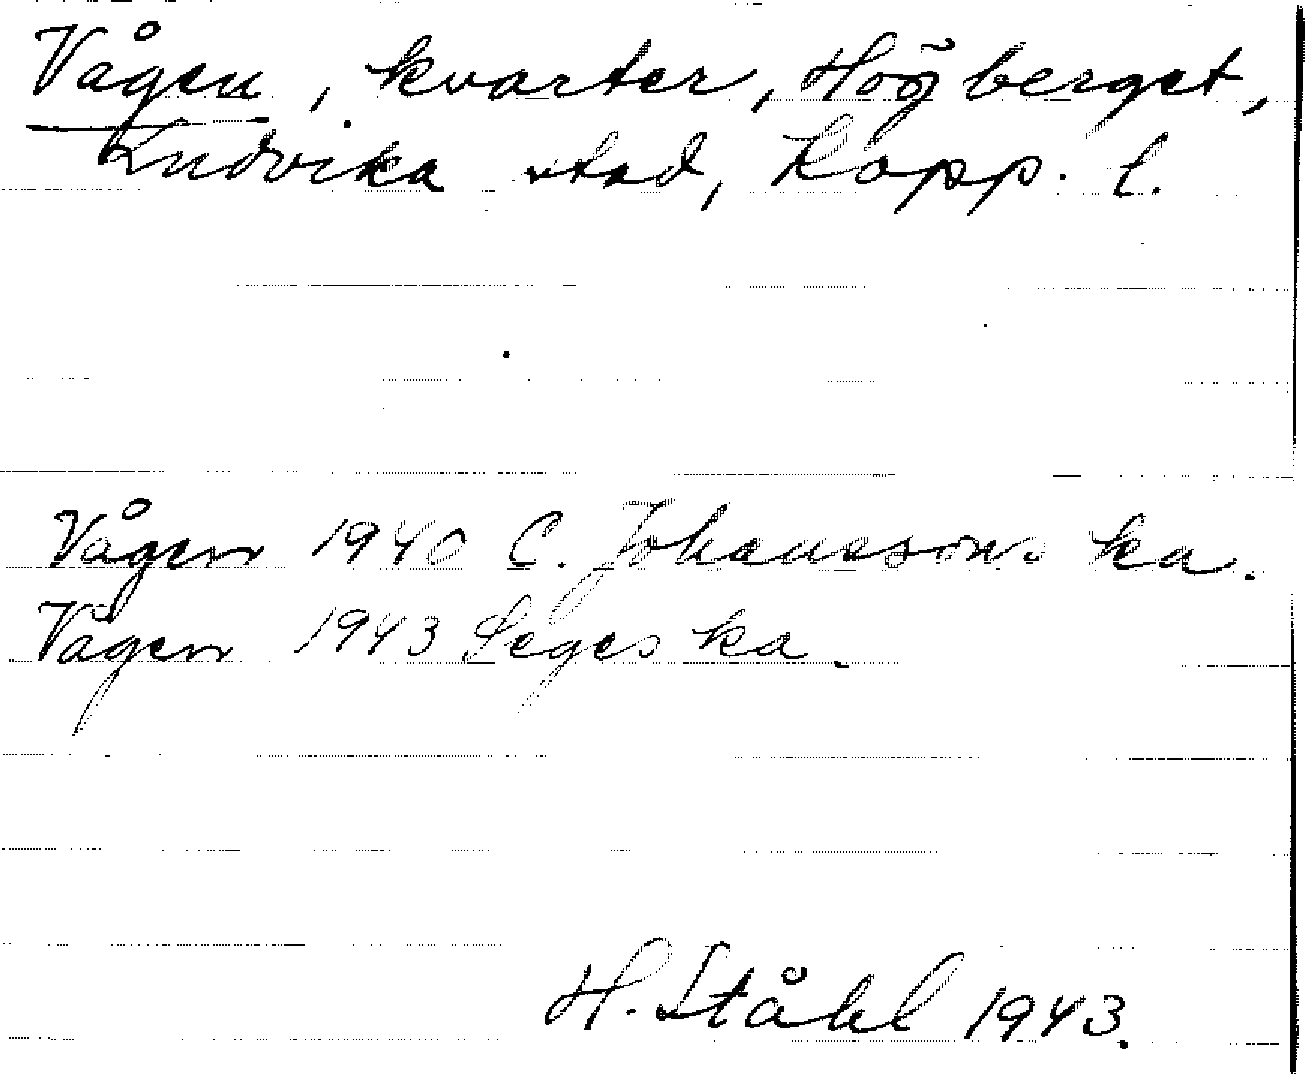 Vågen, kvarter, Högberget,
Ludvika stad, Kopp. l.
Vågen 1940 C. Johanssons ka.
Vågen 1943 Seges ka.
H. Ståhl 1943.